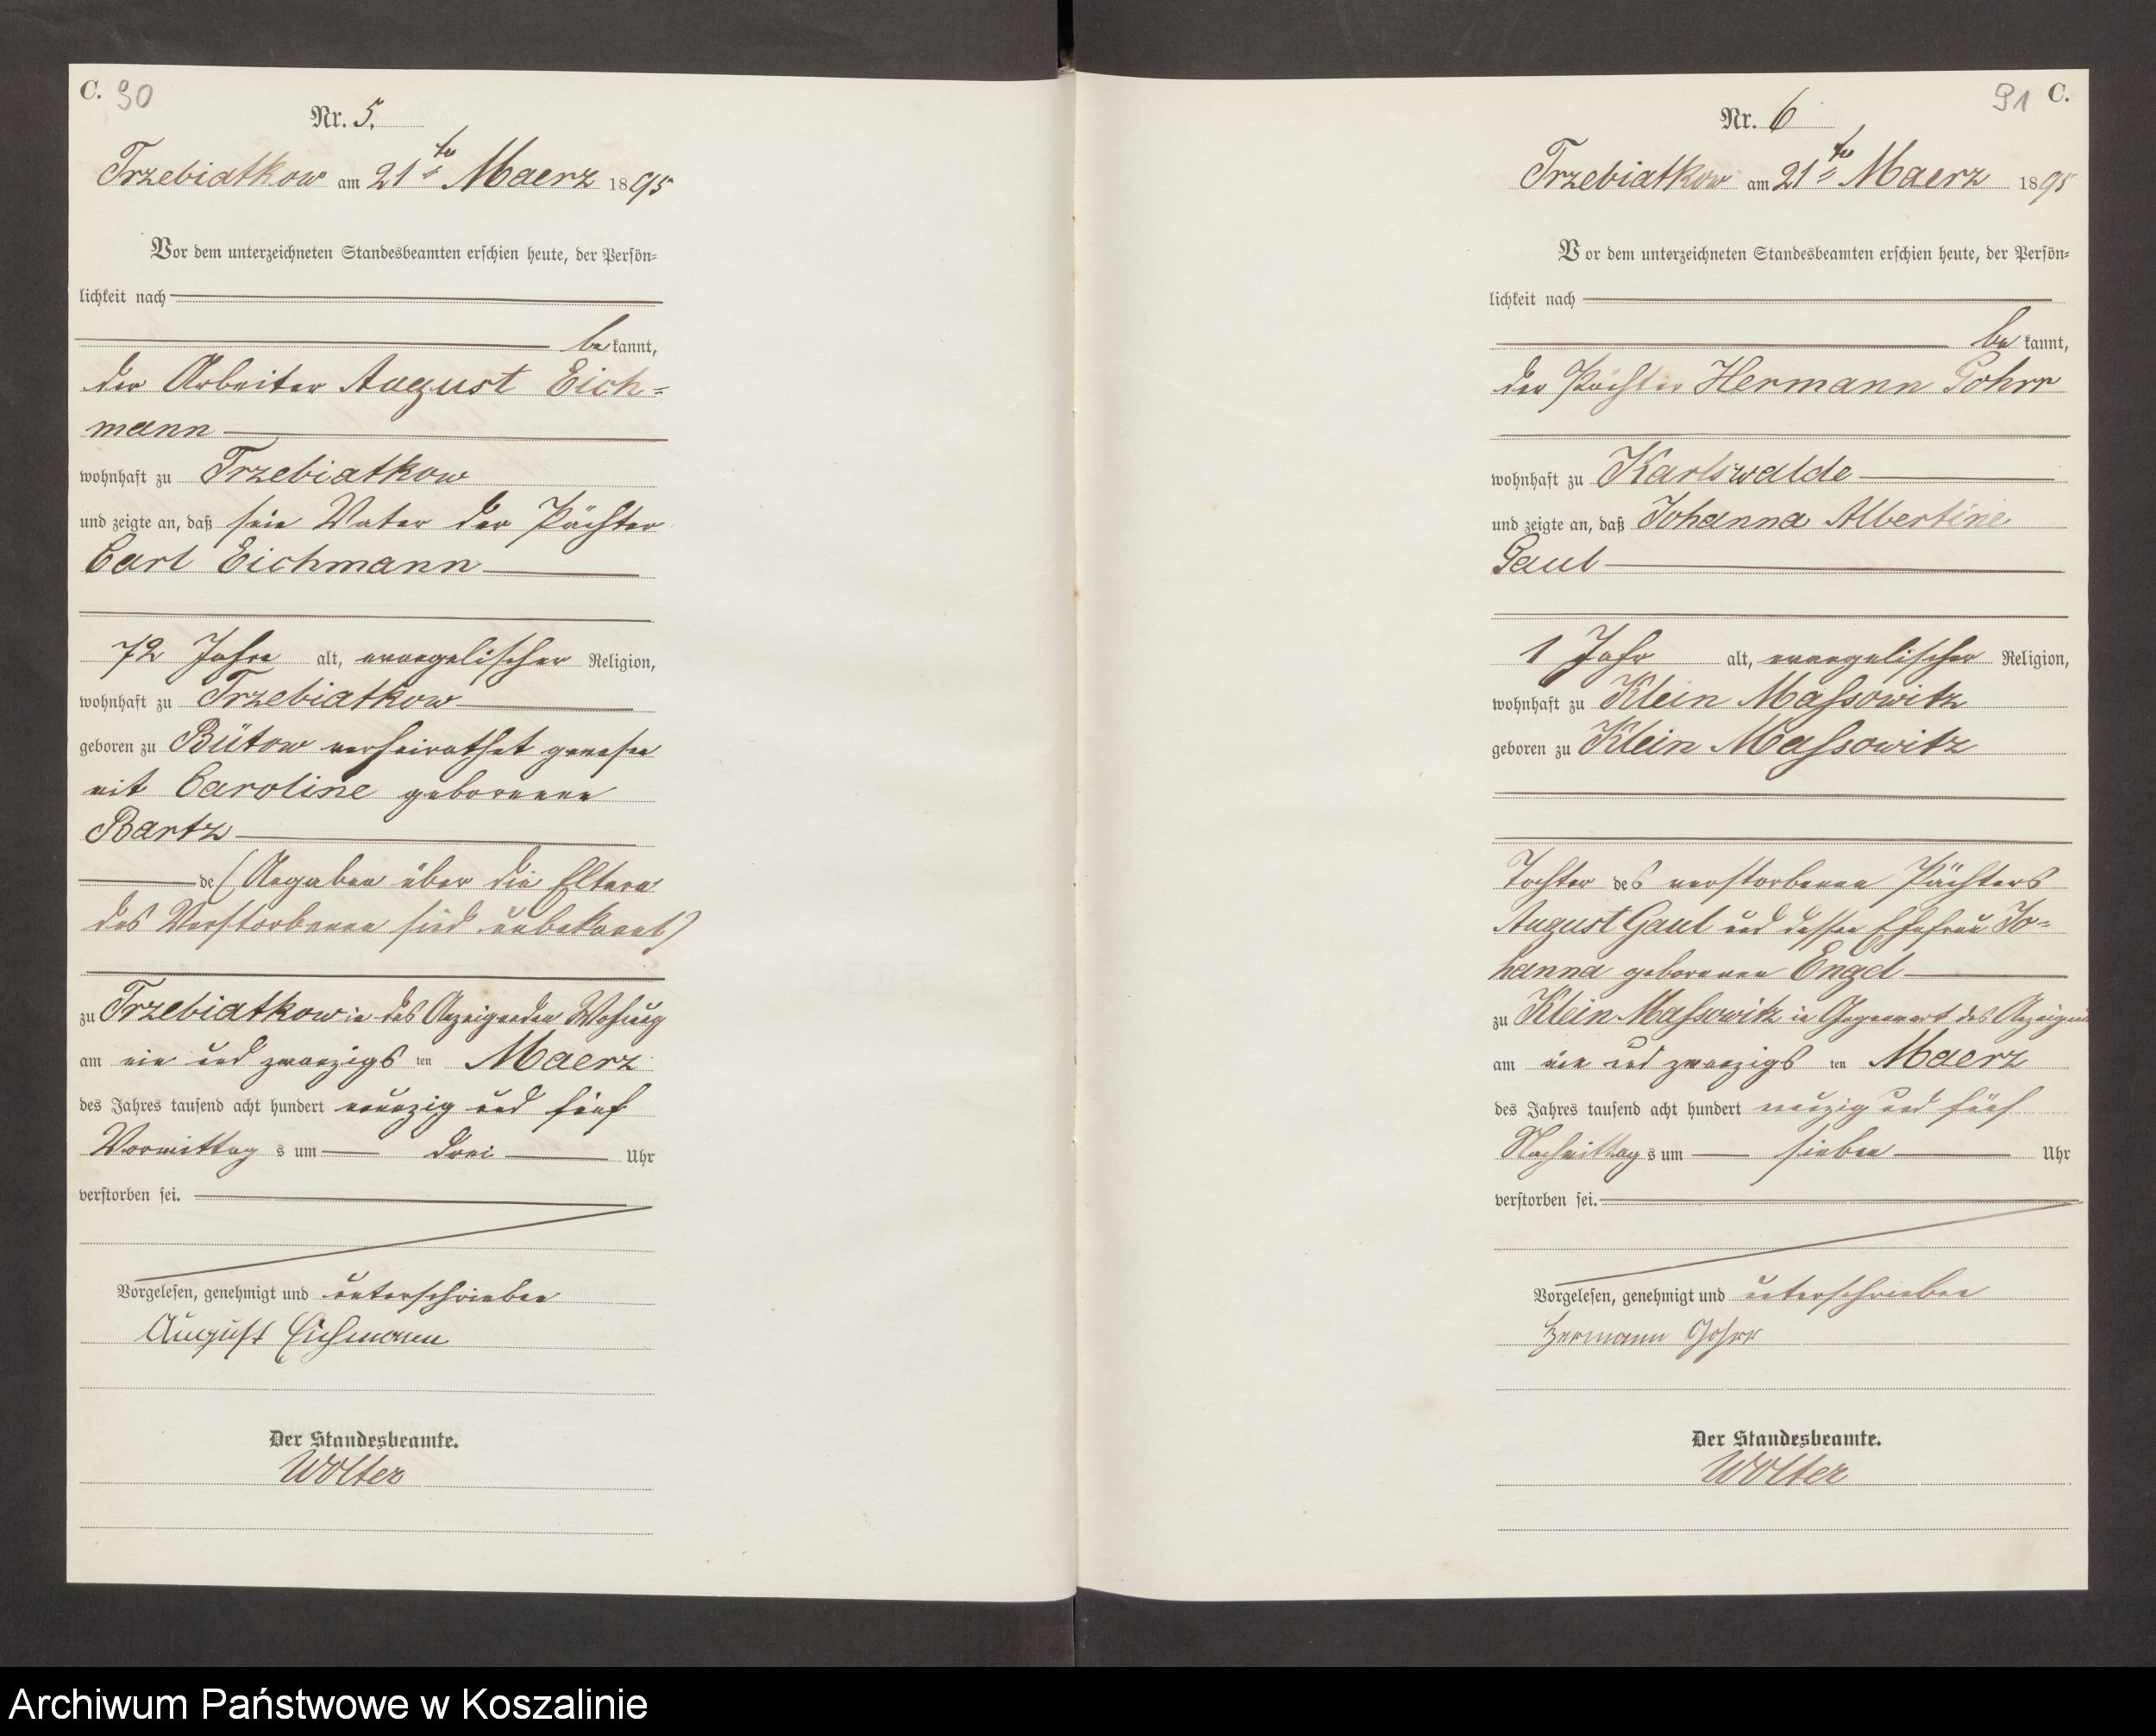 C. 90
Nr. 5.
Trzebiatkow am 21ten Maerz 1895
Vor dem unterzeichneten Standesbeamten erschien heute, der Persön=
lichkeit nach
be kannt,
der Arbeiter August Eich=
mann
wohnhaft zu Trzebiatkow
und zeigte an, daß sein Vater der Pächter
Carl Eichmann
72 Jahre alt, evangelischer Religion,
wohnhaft zu Trzebiatkow
geboren zu Bütow verheirathet gewesen
mit Caroline geborenen
Bartz
de (Angaben über die Eltern
des Verstorbenen sind unbekannt)
zu Trzebiatkow in des Anzeigenden Wohnung
am ein und zwanzigs ten Maerz
des Jahres tausend acht hundert neunzig und fünf
Vormittag s um drei Uhr
verstorben sei.
Vorgelesen, genehmigt und unterschrieben
August Eichmann
Der Standesbeamte.
Wolter
91 C.
Nr. 6
Trzebiatkow am 21ten Maerz 1895
Vor dem unterzeichneten Standesbeamten erschien heute, der Persön=
lichkeit nach
be kannt,
der Pächter Hermann Gohrr
wohnhaft zu Karlswalde
und zeigte an, daß Johanna Albertine
Gaul
1 Jahr alt, evangelischer Religion,
wohnhaft zu Klein Massowitz
geboren zu Klein Massowitz
Tochter des verstorbenen Pächters
August Gaul und dessen Ehefrau Jo=
hanna geborenen Engel
zu Klein Massowitz in Gegenwart des Anzeigenden
am ein und zwanzigs ten Maerz
des Jahres tausend acht hundert neunzig und fünf
Nachmittag s um sieben Uhr
verstorben sei.
Vorgelesen, genehmigt und unterschrieben
Hermann Gohrr
Der Standesbeamte.
Wolter
Archiwum Państwowe w Koszalinie